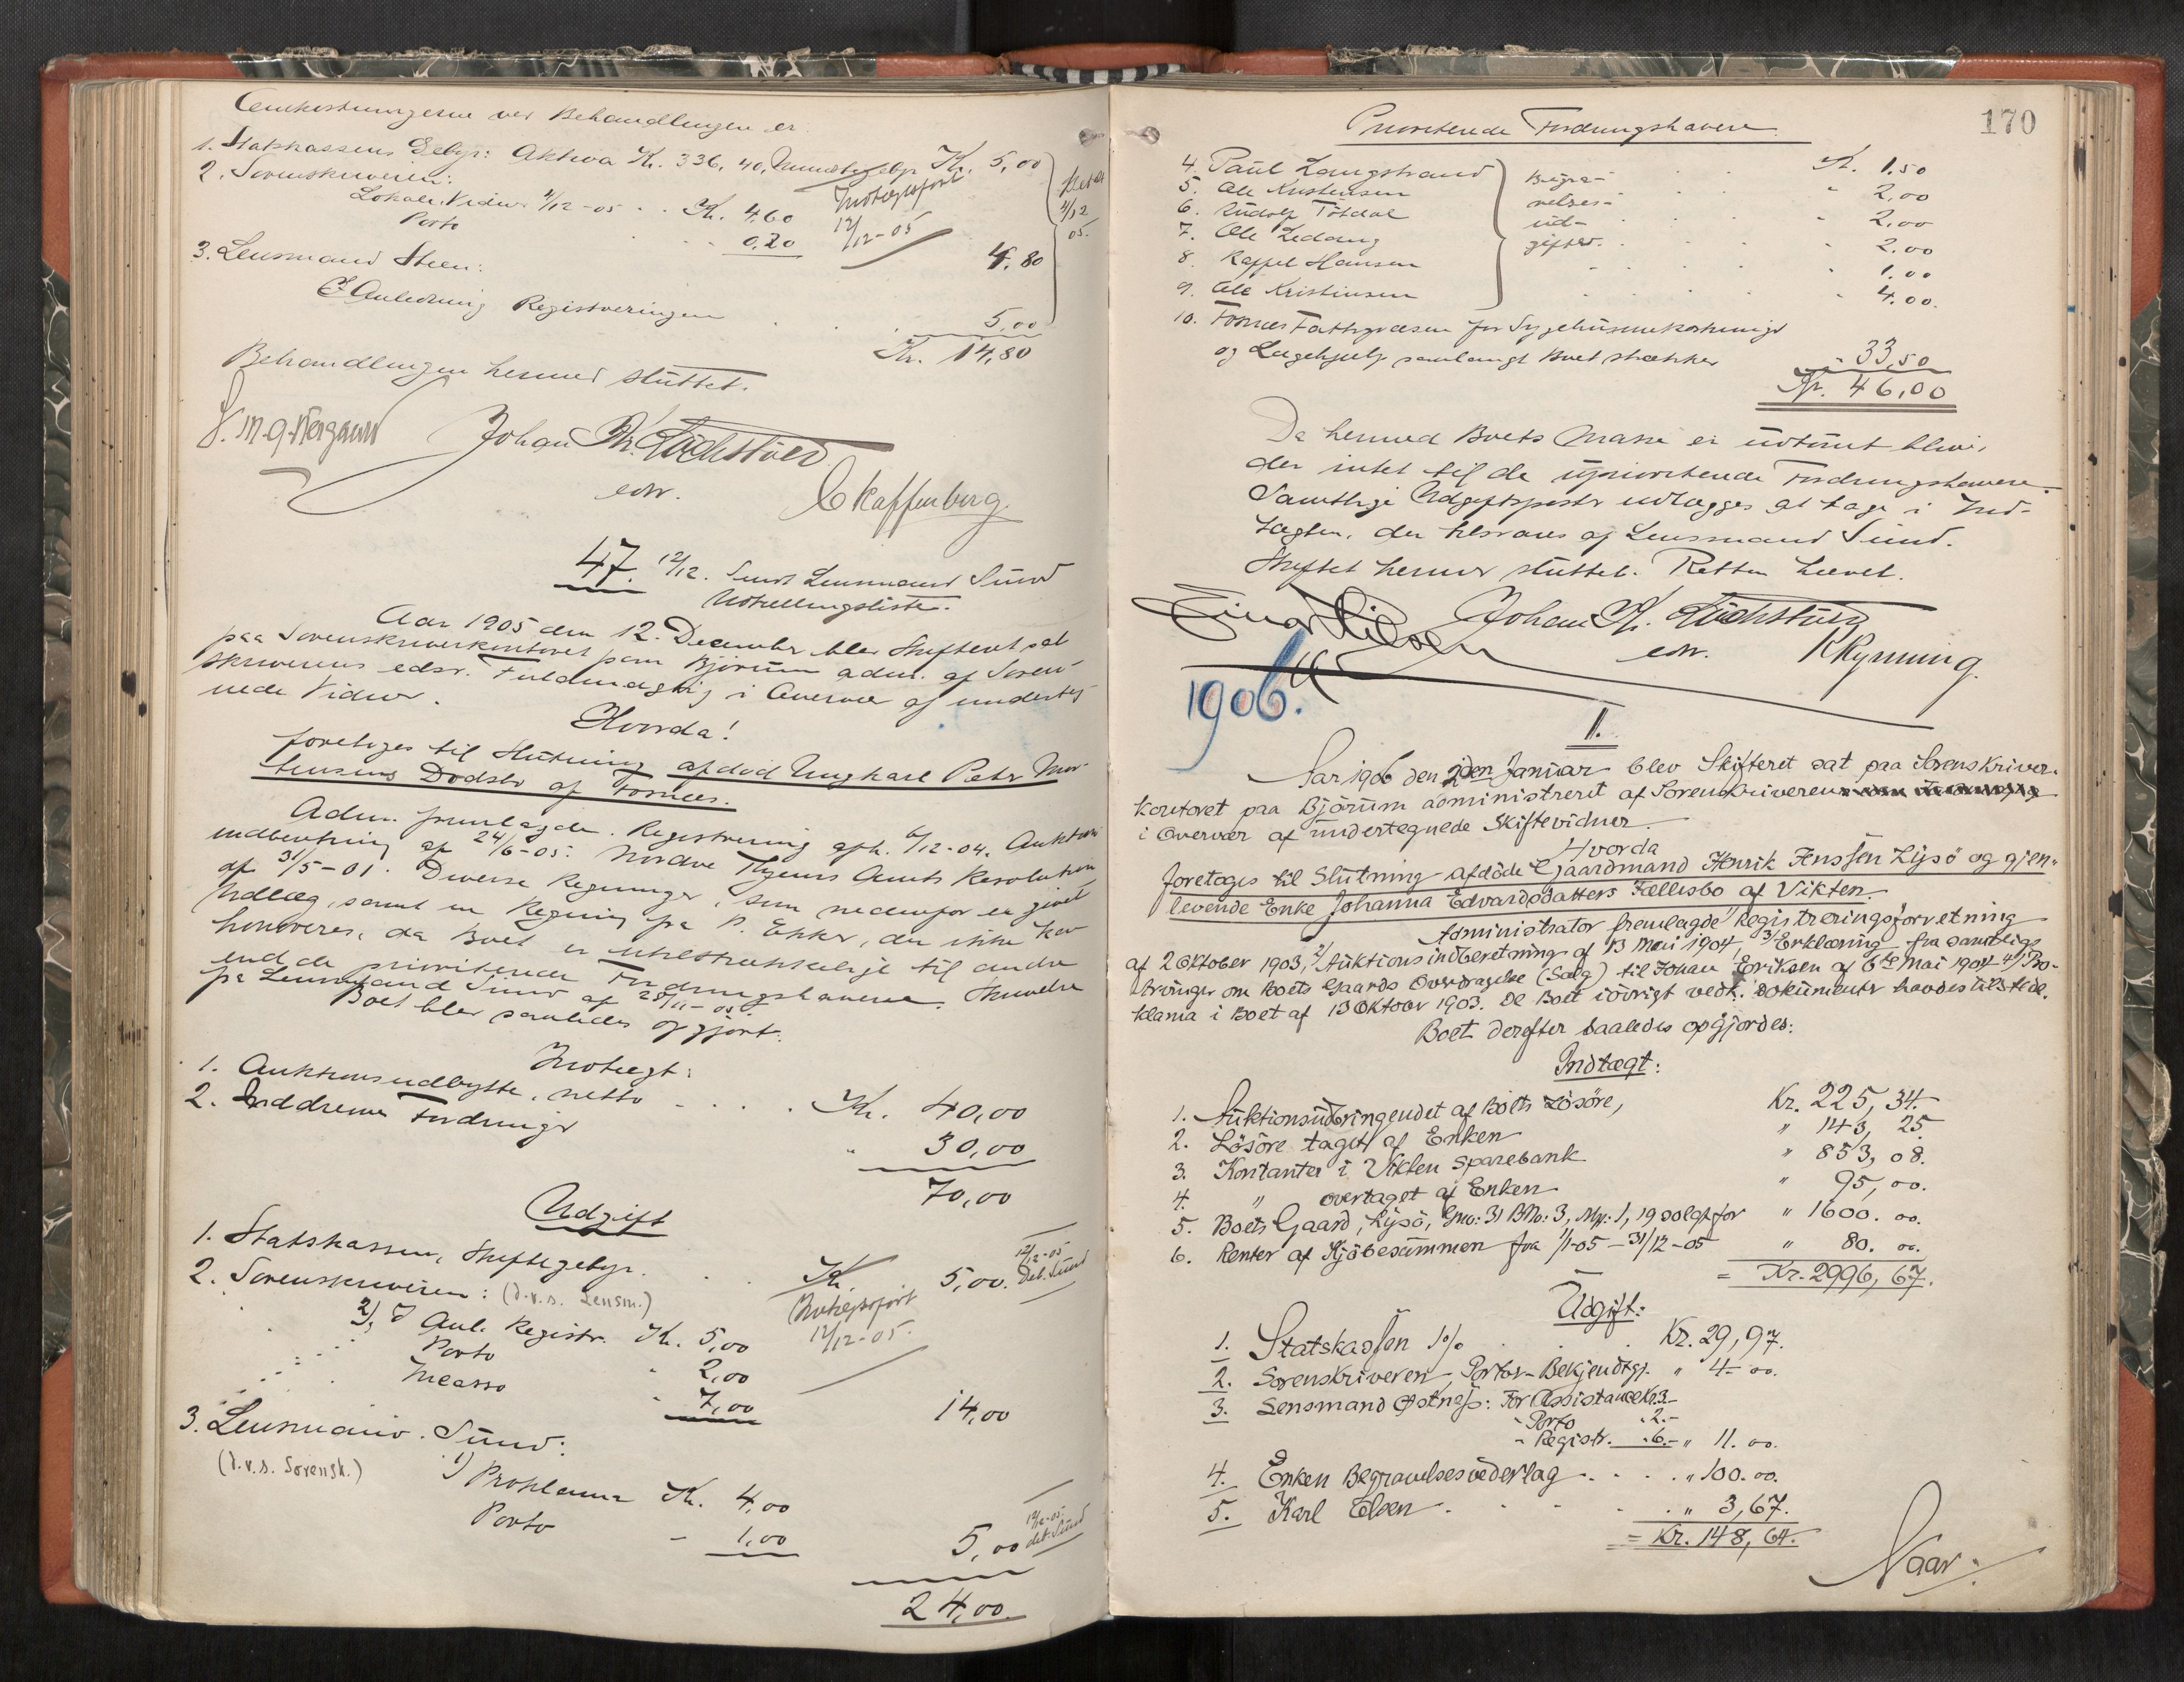 Omkostningerne ved Behandlingen er
1. Statskassens Gebyr: Aktiva Kr. 336,40, Mindstegebyr Kr. 5,00
2. Sorenskriveren:
Lokale, Vidner 4/12-05 . . Kr. 4,60 Indtægtsført
Porto . . 0,20 12/12-05 4,80
3. Lensmand Steen:
I Anledning Registreringen . . . 5,00
Kr. 14,80
4/12 05.
Behandlingen hermed sluttet.
Johan
edsv.
C Kaffenberg.
47. 12/12. Sendt Lensmand Sund
Utdelingsliste.
Aar 1905 den 12. December blev Skifteret sat
paa Sorenskriverkontoret paa Bjørum adm. af Soren-
skriverens edsv. Fuldmægtig i Overvær af underteg-
nede Vidner.
Hvorda!
foretoges til Slutning afdød Ungkarl Peter Mor-
tensens Dødsbo af Fosnes.
Adm. fremlagde. Registrering afh. 6/12-04. Auktions
indberetning af 24/6-05. Nordre Thjems Amts Resolution
af 31/5-01. Diverse Regninger, som nedenfor er givet
Udlæg, samt en Regning fra P. Ekker, der ikke kan
honoreres, da Boet er utilstrækkelige til andre
end de prioriterede Fordringshavere. Skrivelse
fra Lensmand Sund af 25/11-05.
Boet blev saaledes opgjort.
Indtægt:
1. Auktionsudbytte, netto - . . . Kr. 40,00
2. Inddrevne Fordringer " 30,00
70,00
Udgift
1. Statskassen, Skiftegebyr. . . Kr. 5,00. 12/12-05 Deb. Sund
2. Sorenskriveren: (d.v.s. Lensm.) Indtægtsført
2) I Anl. Registr. Kr. 5,00 12/12-05.
Porto " 2,00
Incasso " 7,00 14,00
3. Lensmand. Sund:
(d.v.s. Sorensk.) 1) Proklama Kr. 4,00
Porto - 1,00 5,00 12/12-05. deb. Sund
24,00
170
Prioriterede Fordringshavere
4. Paul Langstrand Begra- . . Kr. 1,50
5. Ole Kristensen velses- . . " 2,00
6. Rudolf Tøtdal ud- . . " 2,00
7. Ole Ledang gifter. . . " 2,00
8. Kappel Hansen . . " 1,00
9. Ole Kristiansen . . " 4,00.
10. Fosnes Fattigvæsen for Sygehusomkostninger
og Lægehjælp saalangt Boet strækker " 33,50
Kr. 46,00
Da hermed Boets Masse er udtømt blev
der intet til de uprioriterede Fordringshavere.
Samtlige Udgiftsposter udlægges at tage i Ind-
tægten, der tilsvares af Lensmand Sund.
Skiftet hermed sluttet. Retten hævet.
Johan
edsv. K Rynning.
1906.
1.
Aar 1906 den 2den Januar blev Skifteret sat paa Sorenskriver-
kontoret paa Bjørum administreret af Sorenskriveren
i Overvær af undertegnede Skiftevidner.
Hvorda
foretoges til Slutning afdøde Gaardmand Henrik Jenssen Lysø og gjen-
levende Enke Johanna Edvardsdatters Fællesbo af Vikten.
Administrator fremlagde 1) Registreringsforretning
af 2 Oktober 1903, 2) Auktionsindberetning af 13 Mai 1904, 3) Erklæring fra samtlige
Arvinger om Boets Gaards Overdragelse (Salg) til Johan Eriksen af 6te Mai 1904 4) Pro-
klama i Boet af 13 Oktober 1903. De Boet iøvrigt vedk. Dokumenter havdes tilstede.
Boet derefter saaledes opgjordes:
Indtægt:
1. Auktionsudbringendet af Boets Løsøre, Kr. 225,34.
2. Løsøre taget af Enken " 143,25
3. Kontanter i Vikten Sparebank " 853,08.
4. " overtaget af Enken " 95,00.
5. Boets Gaard, Lysø, Gno: 31 BNo: 3, Mp: 1,19 solgt for " 1600.00
6. Renter af Kjøbesummen fra 1/1-05 - 31/12-05 " 80.00.
= Kr. 2996,67.
Udgift:
1. Statskassen 1% . . Kr. 29,97.
2. Sorenskriveren, Porto - Bekjendtgj. " 4-00.
3. Lensmand Østnes: For Assistance Kr. 3.-
" Porto " 2.-
" Registr. " 6.- " 11.00.
4. Enken Begravelsesvederlag . . . " 100.00.
5. Karl Olsen . . . " 3,67.
= Kr. 148,64.
Naar